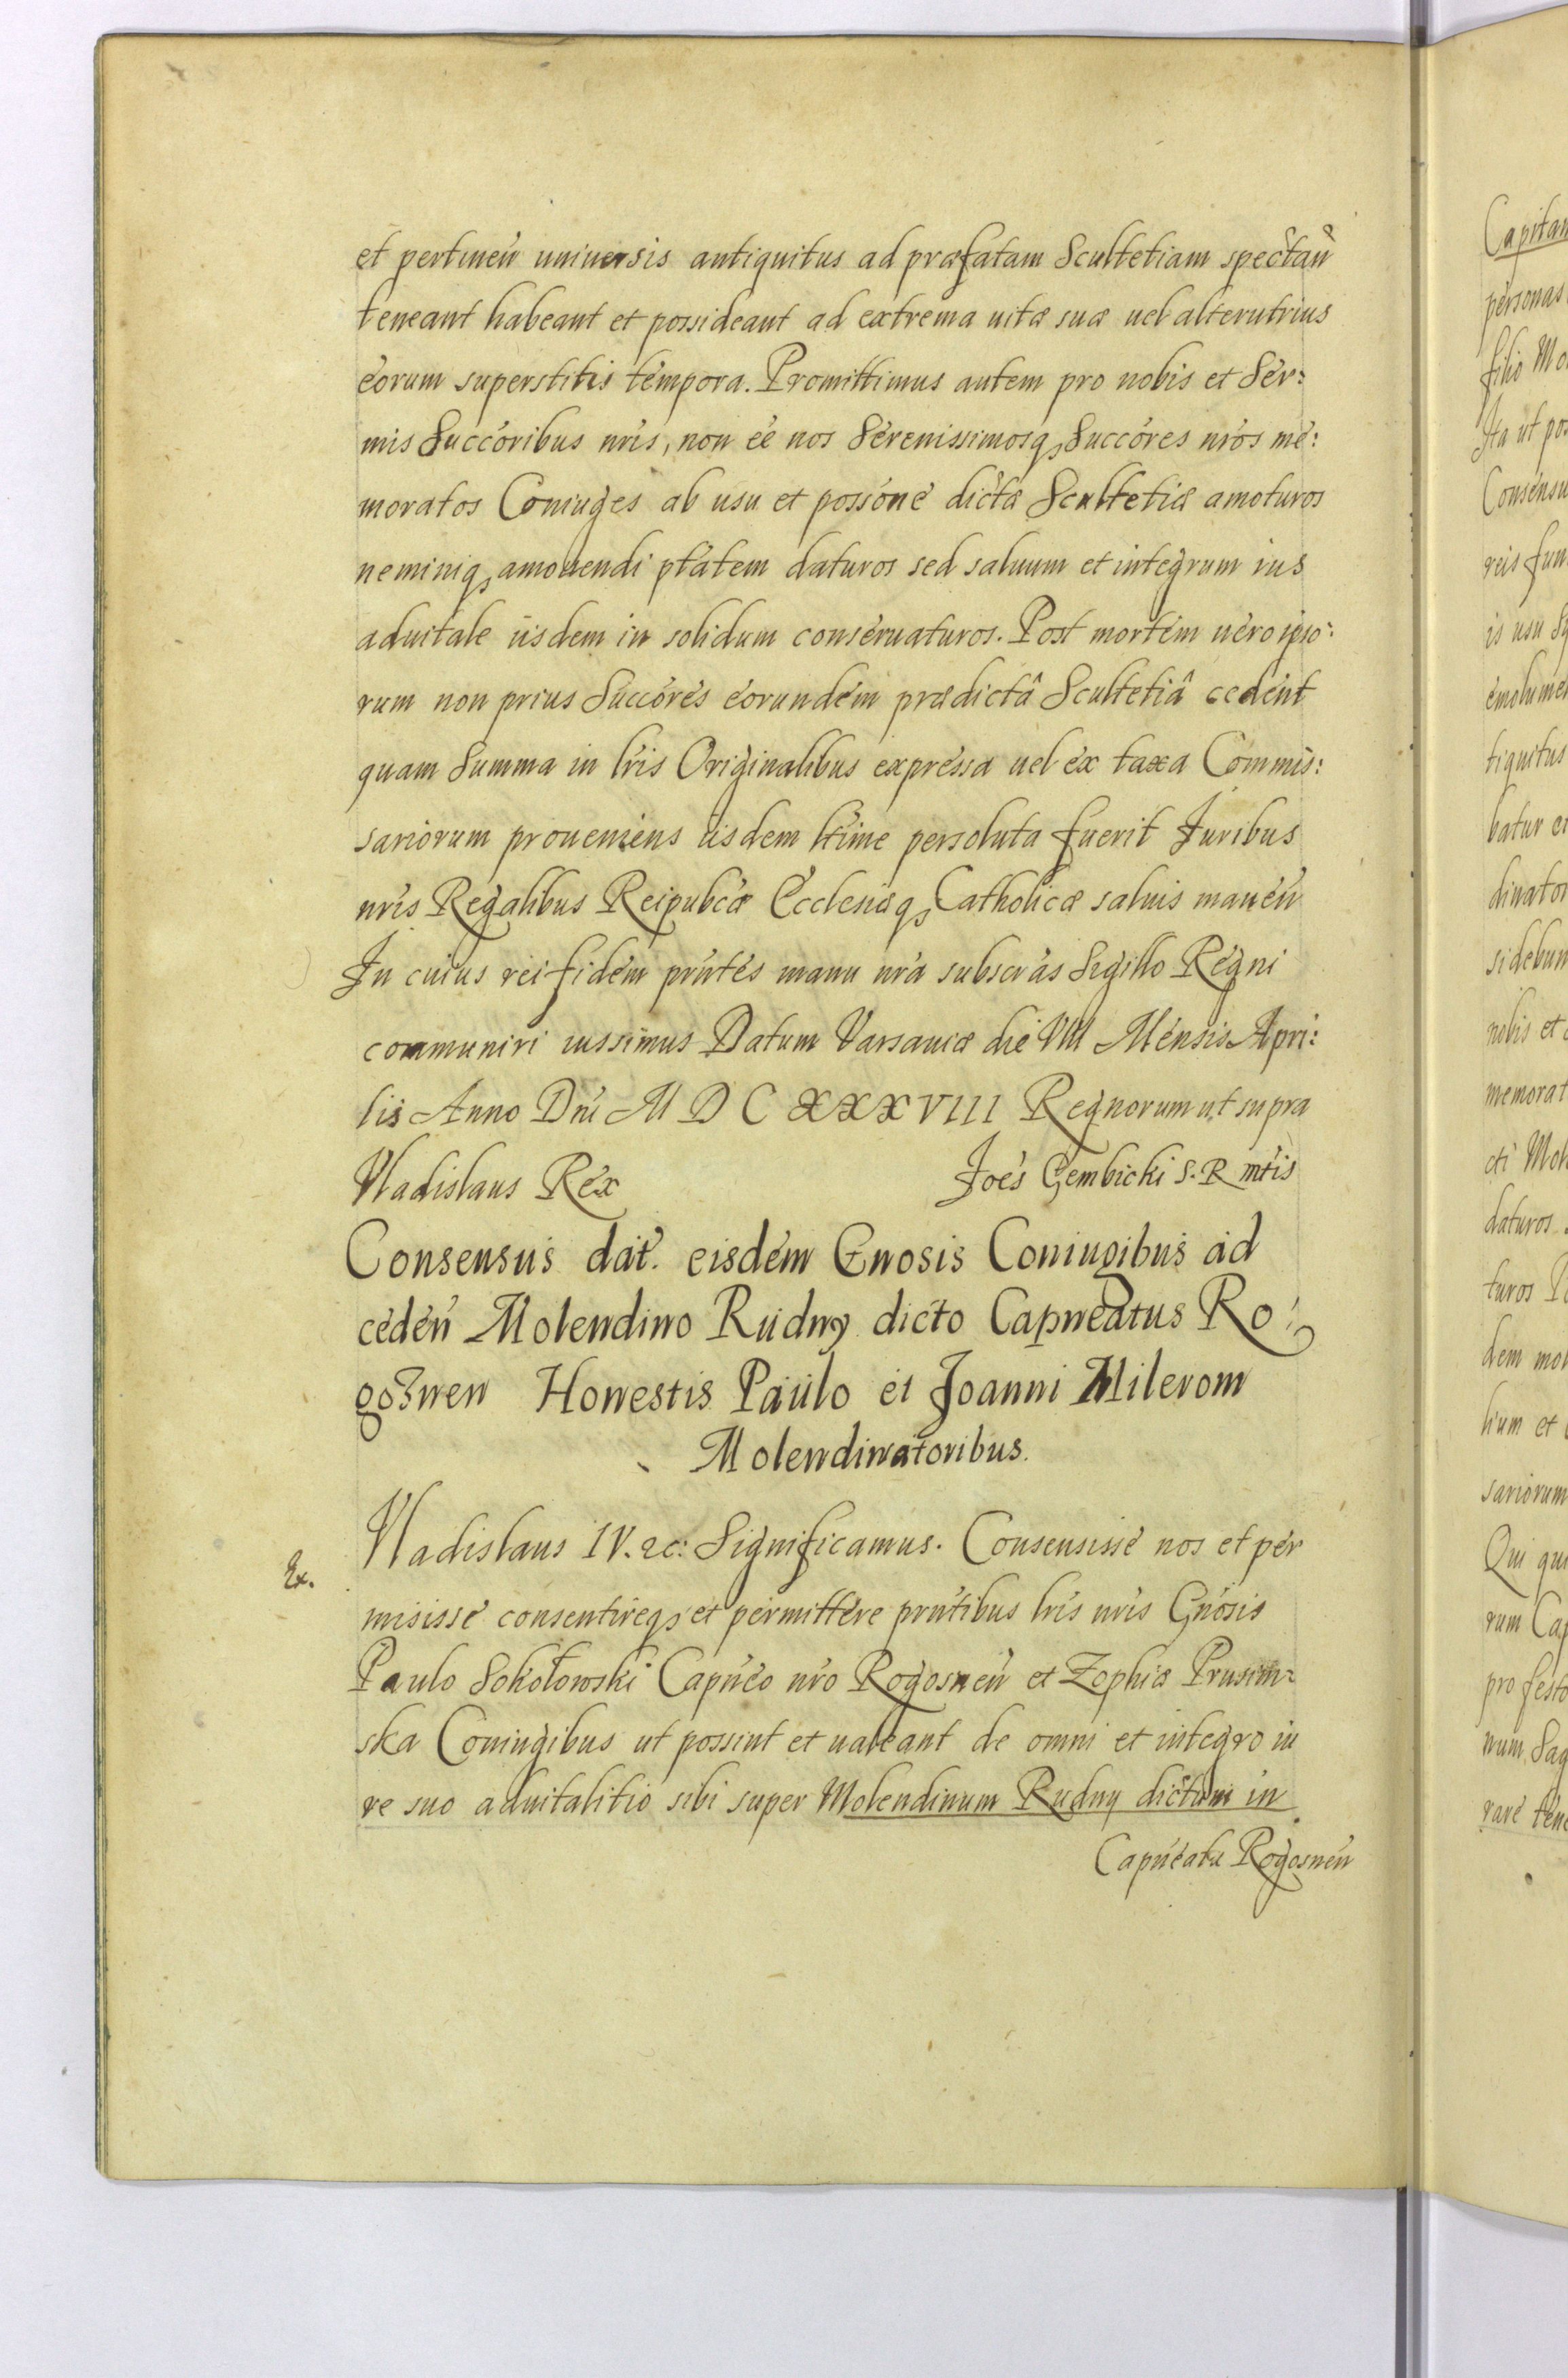 et pertineń universis antiquitus ad præfatam Scultetiam spectań
teneant habeant et possideant ad extrema uitæ suæ uel alterutrius
eorum superstitis tempora. Promittimus autem pro nobis et Ser:
mis Succoribus nris, non eé nos Serenissimosq Succores nros me:
moratos Coniuges ab usu et possone dictæ Scultetiæ amoturos
neminiq amouendi ptatem daturos sed saluum et integrum ius
aduitale iisdem in solidum conseruaturos. Post mortem uero ipso:
rum non prius Succores eorundem prædictâ Scultetiâ cedent
quam Summa in lris Originalibus expressa uel ex taxa Commis:
sariorum proueniens iisdem ltime persoluta fuerit Juribus
nris Regalibus Reipubcæ Ecclesiæq Catholicæ saluis maneń
In cuius rei fidem prntes manu nra subscras Sigillo Regni
communiri iussimus Datum Varsauiæ die VIII Mensis Apri:
lis Anno Dni M D C XXXVIII Regnorum ut supra
Vladislaus Rex Joes Gembicki S. R mtis
Consensus dat. eisdem Gnosis Coniugibus ad
cedeń Molendino Rudny dicto Capneatus Ro:
gozneń Honestis Paulo et Joanni Milerom
Molendinatoribus.
Ex.
Vladislaus IV. &c: Significamus. Consensisse nos et per
misisse consentireq et permittere prntibus lris nris Gnosis
Paulo Sokołowski Capneo nro Rogosneń et Zophiæ Prusim:
ska Coniugibus ut possint et ualeant de omni et integro iu
re suo aduitalitio sibi super Molendinum Rudny dictum in
Capneatu Rogosneń
Capitan
personas
filio Mo
Ita ut pos
Consensu
reis fun
is usu Sy
emolumen
tiquitus
batur ei
dinator
sidebun
nobis et
memorat
cti Mol
daturos
turos Po
dem mol
lium et
sariorum
Qui qui
rum Cap
pro festo
num Sag
rare tene